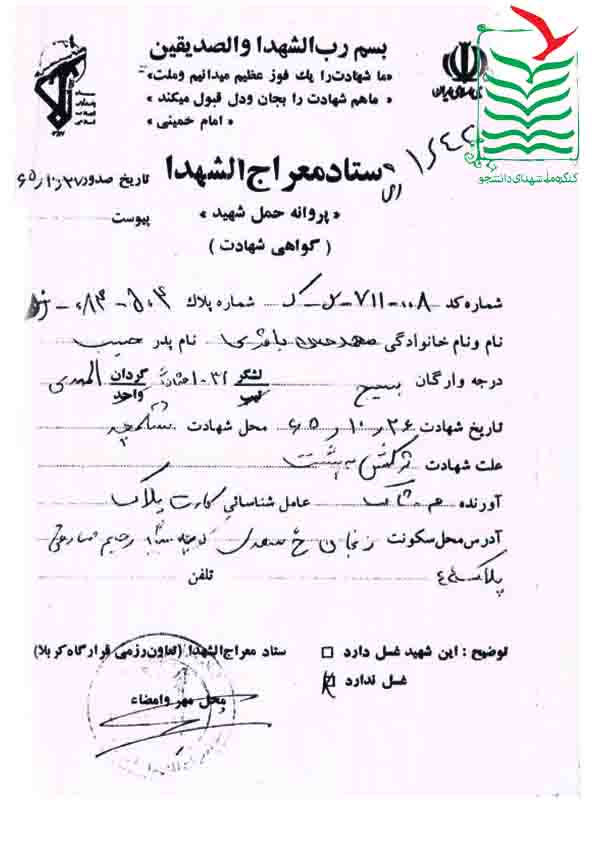 بسم رب الشهدا والصدیقین
«ما شهادت را یك فوز عظیم میدانیم وملت
ماهم شهادت را بجان ودل قبول میکند»
«امام خمینی»
کنگره ملی شهدای دانشجو
ستاد معراج الشهدا
تاریخ صدور ۶۵/۱۰/۲۷
«پروانه حمل شهید»
پیوست
(گواهی شهادت)
شماره کد ۷۱۱-۰۰۸ شماره پلاك
نام ونام خانوادگی باقری نام پدر حبیب
درجه وارگان بسیج لشگر تیپ ۳۱ گردان واحد المهدی
تاریخ شهادت ۲۶/۱۰/۶۵ محل شهادت شلمچه
علت شهادت ترکش به پشت
آورنده عامل شناسائی کارت پلاک
آدرس محل سکونت زنجان خ سعدی
پلاک تلفن
توضیح : این شهید غسل دارد
ستاد معراج الشهدا (تعاون رزمی قرارگاه کربلا)
غسل ندارد
محل مهر وامضاء